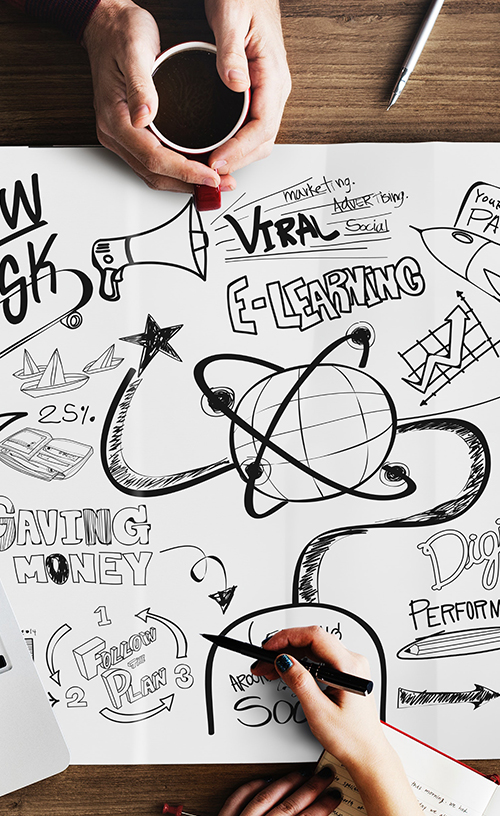 W
SK
marketing.
ADVERTising.
VIRAL
Social
YOUR
PA
E-LEARNING
25%
SAVING
MONEY
Digi
PERFORM
1
2
3
FOLLOW
THE
PLAN
this morning, we